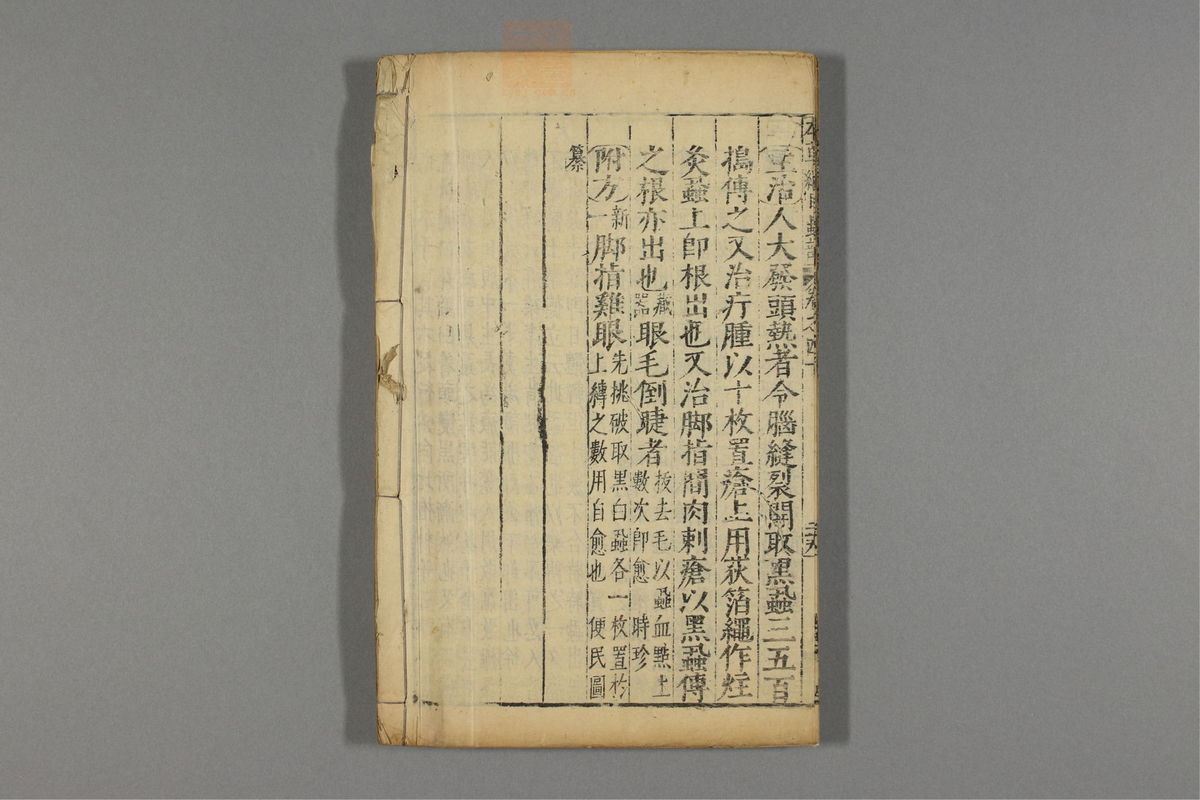 本草綱目蟲部卷之四十
主治人大發頭熱者令腦縫裂開取黑蝨三五百
搗傅之又治疔腫以十枚置瘡上用荻箔繩作炷
灸蝨上卽根出也又治脚指間肉刺瘡以黑蝨傅
之根亦出也藏器眼毛倒睫者拔去毛以蝨血點上數次卽愈時珍
附方新一脚指雞眼先挑破取黑白蝨各一枚置於上縛之數用自愈也便民圖
纂